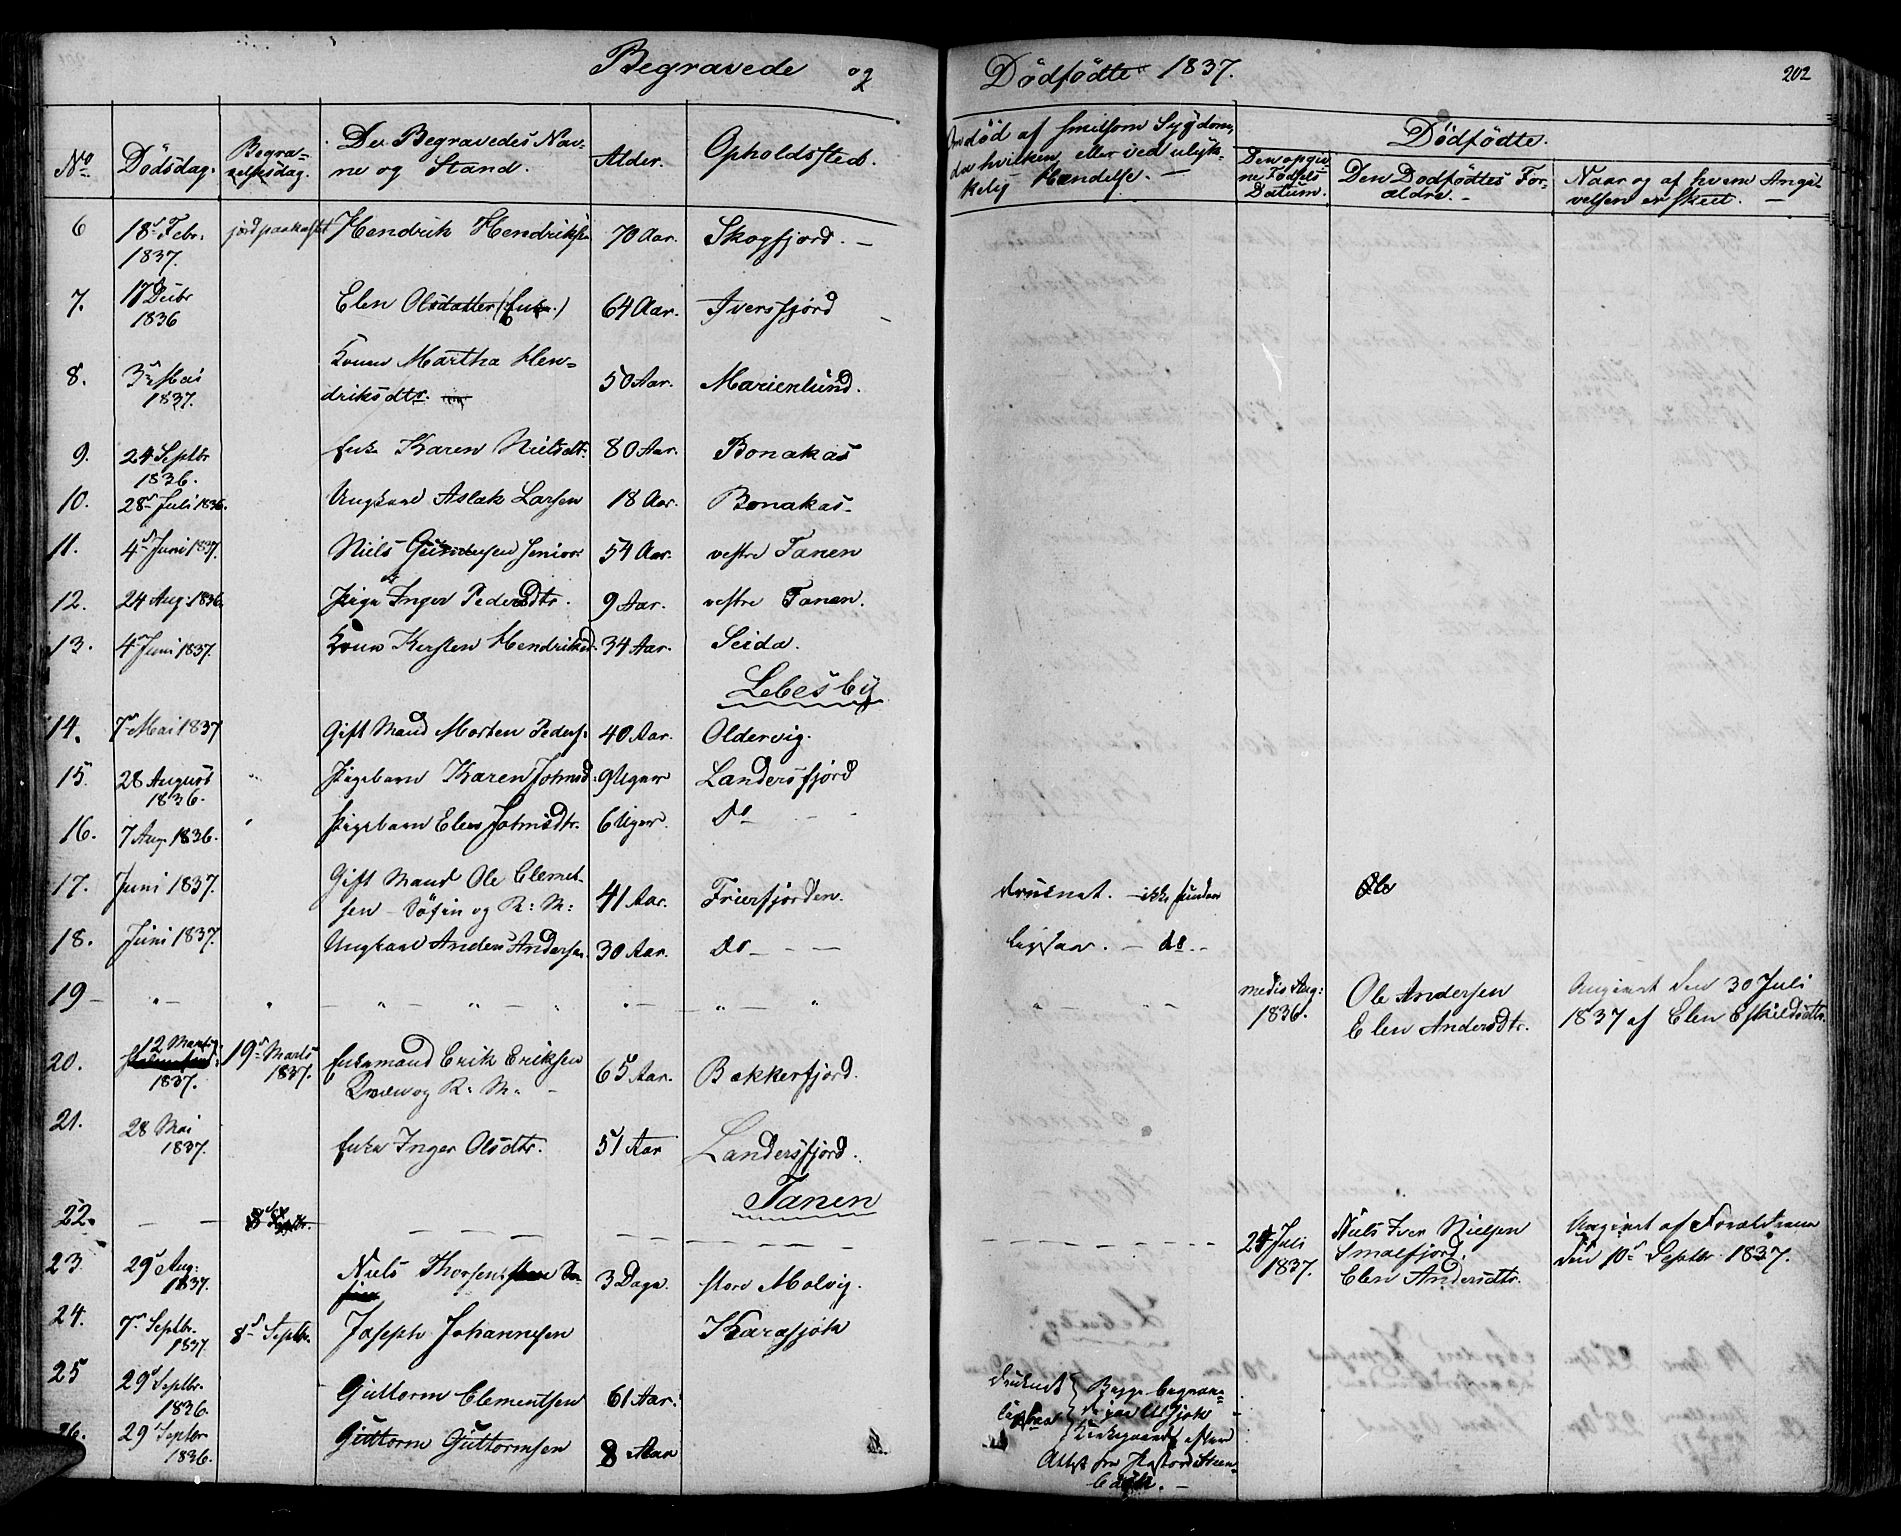 Begravede og Dödfödte 1837.
202
No
Dödsdag.
Begra-
velsesdag.
De Begravedes Nav-
ne og Stand.
Alder.
Opholdssted.
död af smitsom Sygdom,
da hvilken, eller ved ulyk-
kelig Hændelse. —
Dödfödte.
Den opgiv-
ne Födsels
Datum.
Den Dödfödtes For-
ældre. -
Naar og af hvem Angi-
velsen er skeet. —
6 18d Febr. 1837. jordpaakastet Hendrik Hendriksen 70 Aar. Skogfjord. —
7. 17 Decbr 1836 Elen Olsdatter (Enke.) 64 Aar. Iversfjord
8. 3d Mai 1837. Konen Martha Hen-
driksdtr. 50 Aar. Marienlund.
9. 24 Septbr 1836. Enke Karen Nielsdtr. 80 Aar. Bonakas
10. 28d Juli 1836. Ungkarl Aslak Larsen 18 Aar. Bonakas-
11. 4d Juni 1837. Niels Gundersen senior 54 Aar. vestre Tanen
12. 24 Aug. 1836. Pige Inger Pedersdtr. 9 Aar. vestre Tanen.
13. 4d Juni 1837. Kone Kirsten Hendriksd. 34 Aar. Seida.
Lebesby
14. 7d Mai 1837 Gift Mand Morten Peders. 40 Aar. Oldervig.
15. 28 August 1836. Pigebarn Karen Johnsd. 9 Uger Landersfjord
16. 7 Aug. 1836. Pigebarn Elen Johnsdtr. 6 Uger. Do -
17. Juni 1837. Gift Mand Ole Clemet-
sen - Söfin og R: M: 41 Aar. Friersfjorden. druknet. - ikke funden Ole
18. Juni 1837. Ungkarl Anders Andersen 30 Aar. Do - — ligesaa. - do. -
19 - medio Aug: 1836. Ole Andersen
Elen Andersdtr. Angivet den 30 Juli
1837 af Elen Eskildsdtr.
20. 12 Marts 1837. 19d Marts 1837. Enkemand Erik Eriksen
Qvæn og R: M: - 65 Aar. Bekkerfjord.
21. 28 Mai 1837. Enke Inger Olsdtr. 51 Aar Landersfjord.
Tanen
22. 8d Septbr. 24 Juli 1837. Niels Iver Nielsen
Smalfjord.
Elen Andersdtr. Angivet af Forældrene
den 10d Septbr 1837.
23. 29d Aug: 1837. Niels Thorsen 3 Dage. store Molvig.
24. 7d Septbr. 1837. 8d Septbr. Joseph Johannesen Karasjok
25 29d Septbr. 1836. Guttorm Clementsen 61 Aar. druknet
26. 29 Septbr 1836. Guttorm Guttormsen 8 Aar ligesaa
Begge begrave-
de paa Utsjok
Kirkegaard efter
Attest fra Pastor Steen-
bäck. -